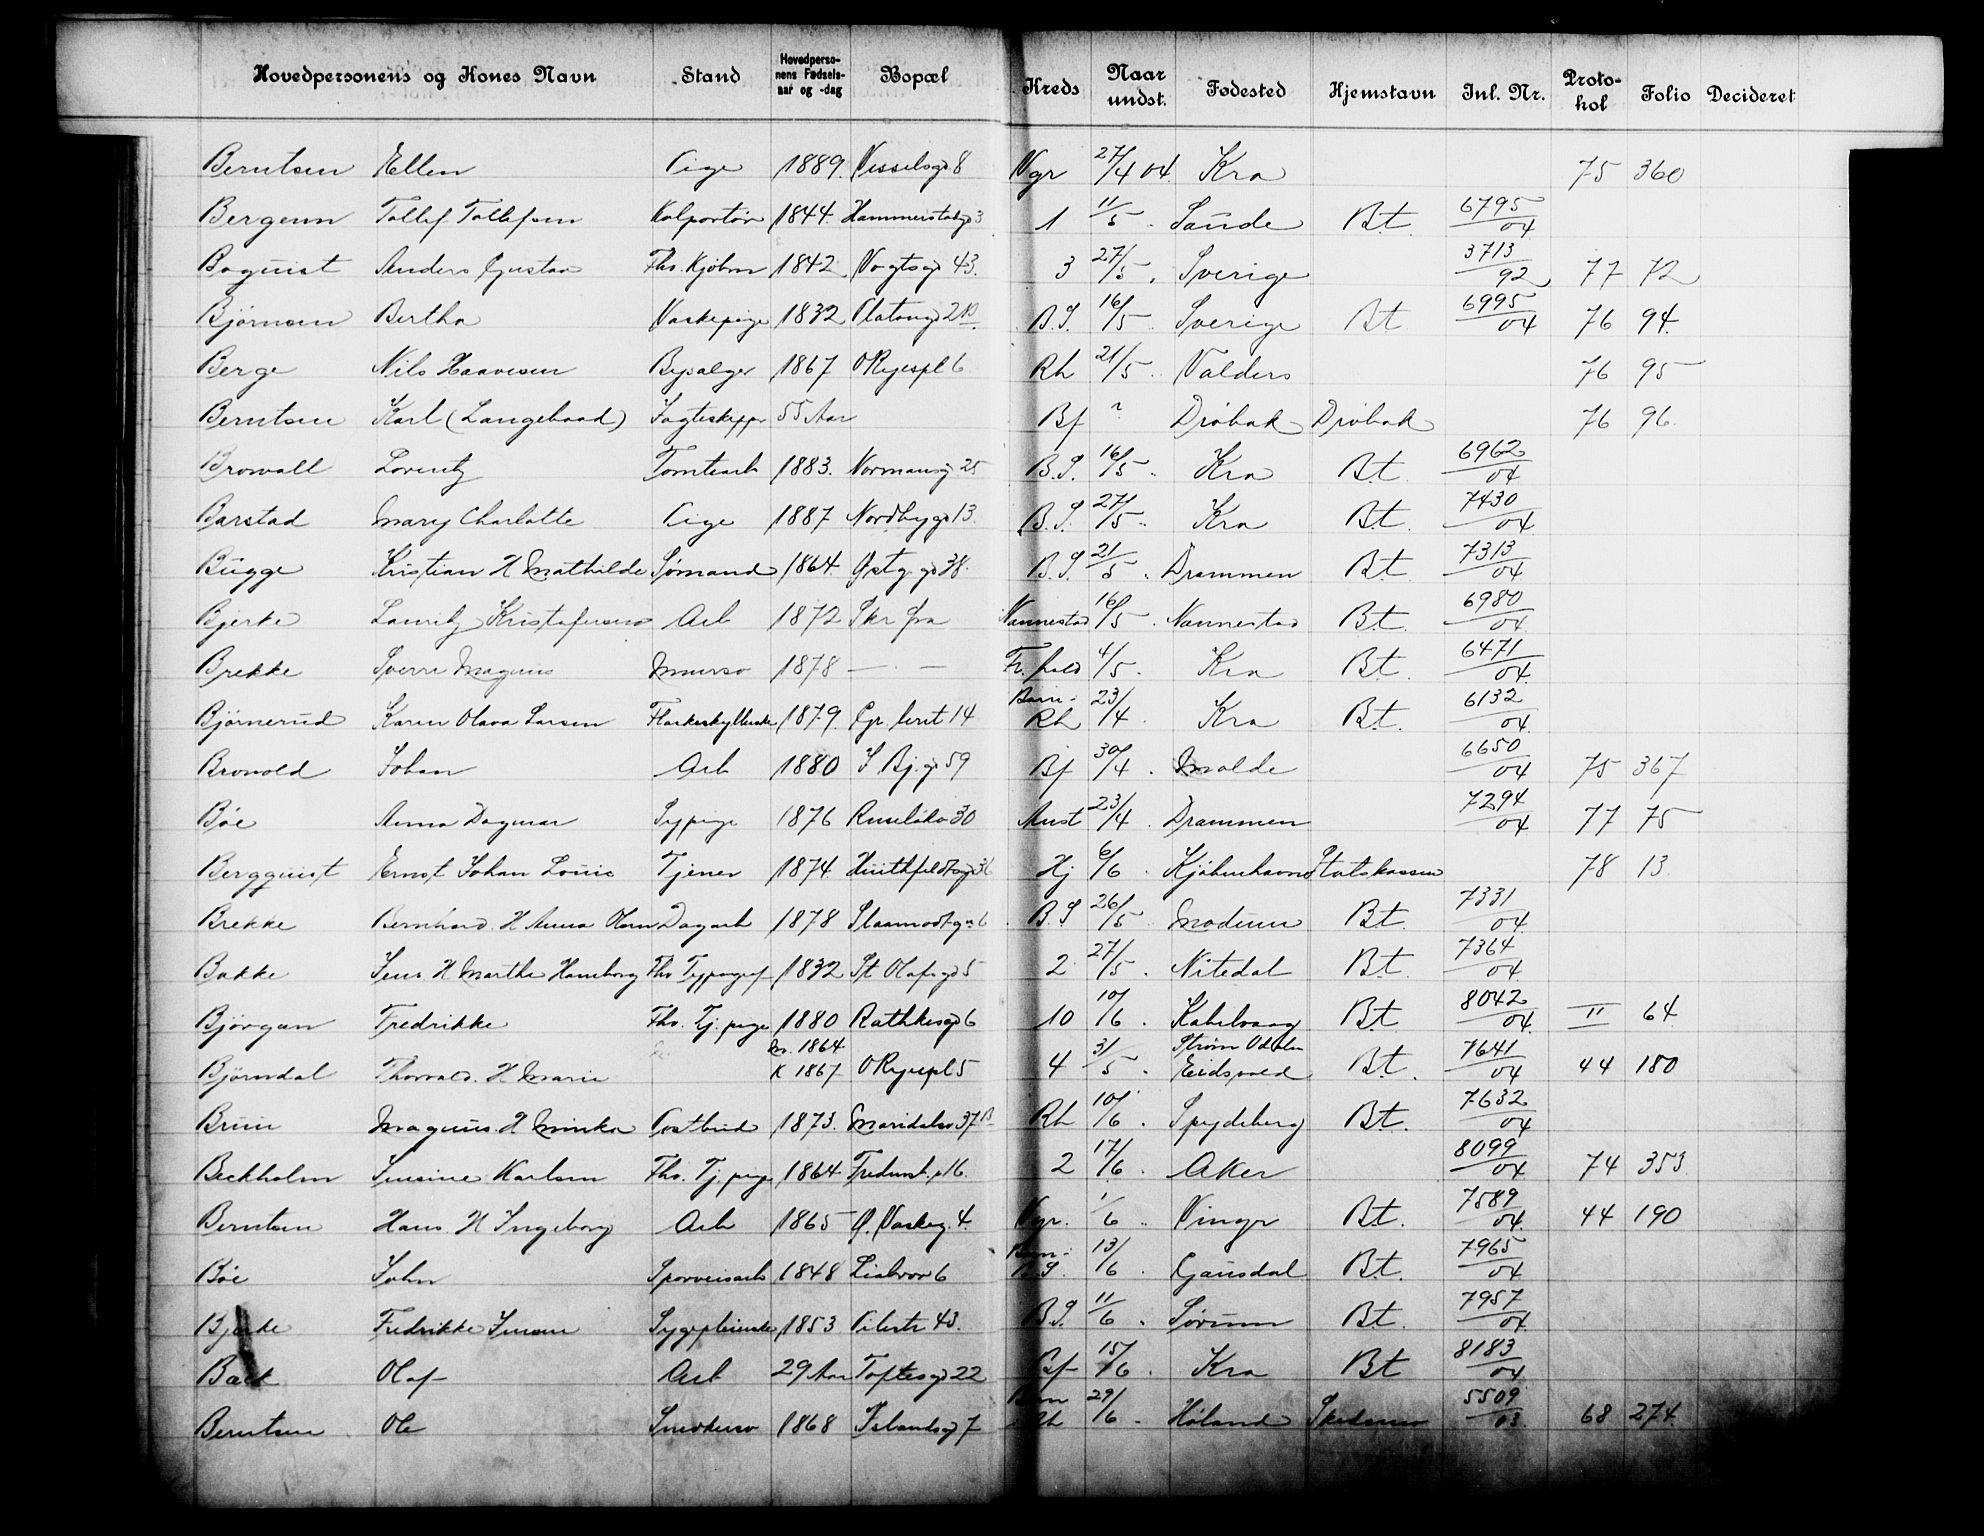 Hovedpersonens og Kones Navn Stand Hovedpersonens Fødselsaar og -dag Bopæl Kreds Naar undst. Fødested Hjemstavn Inl. Nr. Protokol Folio Decideret
Berntsen Ellen Pige 1889. Wesselsgd 8 Vgr 27/4 04. Kra 75 360
Bergeun Tollef Tollefsen Kolportør 1844. 3 1 11/5 . Sande Bt. 6795/04
Boquist Anders Gustav Fhv. Kjøbm 1842 Vogtsgd 43. 3 27/5 . Sverige 3713/92 77 72
Bjørnsen Bertha Vaskepige 1832 Platousgd 2 B. S. 16/5 . Sverige Bt 6995/04 76 94.
Berge Nils Haavesen Bysælger 1867 O Ryespl 6 Rh 21/5 . Valders 76 95
Berntsen Karl (Langebaad) Jagteskippr 55 Aar Bf ? Drøbak Drøbak 76 96.
Browall Lorentz Tomtearb 1883. Normansgd 25 B. S. 16/5 . Kra Bt. 6962/04
Barstad Mary Charlotte Pige 1887 Nordbygd 13. B. S. 27/5 . Kra Bt. 7430/04
Bugge Kristian H Mathilde Sømand 1864. Østg. gd 38. B. S. 21/5 . Drammen Bt. 7313/04
Bjerke Lauritz Kristofersen Arb 1872 Skr fra Nannestad 16/5 . Nannestad Bt. 6980/04
Brekke Sverre Magnus Murersv 1878 — . — Fr. hald 4/5 . Kra Bt. 6471/04
Bjørnerud Karen Olava Larsen Flaskeskyllerske 1879. 14 Barn- Rh 23/4 . Kra Bt. 6132/04
Bronold Johan Arb 1880 S Bj. gd 59 Bf 30/4 . Molde 6650/04 75 367
Bøe Anna Dagmar Sypige 1876 Ruseløkv 30 Aust 23/4 . Drammen 7294/04 77 75
Bergquist Ernst Johan Louis Tjener 1874. Huitfeldtsgd 36 Hj 6/6 . Kjøbenhavn Statskassen 78 13.
Brekke Bernhard. H Anna Dagarb 1878 6 B. S 26/5 . Modum Bt. 7331/04
Bakke Jens. H Marthe Fhv Typograf 1832 St Olafsgd 5 2 27/5 . Nitedal Bt. 7364/04
Bjørgan Fredrikke Fhv. Tj. pige 1880 Rathkesgd 6 10 10/6 . Kabelvaag Bt 8042/04 II 64.
Bjørndal Thorvald. H Marie M. 1864 K 1867 O Ryespl 5 4 31/5 . Strøm Odalen Eidsvold Bt. 7641/04 44 180
Bruu Magnus. H Minka Postbud 1873. Maridalsv 37 B Rh 10/6 . Spydeberg Bt. 7632/04
Beckholm Jensine Karlsen Fhv. Tj. pige 1864 16. 2 17/6 . Aker 8099/04 74 353.
Berntsen Hans. H Ingeborg Arb 1865 Ø. Vaskeg. 4. Vgr. 1/6 . Vinger Bt. 7589/04. 44 190
Bøe John Sporveisarb 1848 Liabrov 6 Barn- B. S. 13/6 . Gausdal Bt. 7965/04
Bjerke Fredrikke Jensen Sygepleierske 1853 Pilestr 43. B. S. 11/6 . Sørum Bt. 7957/04
Back Olaf Arb 29 Aar Toftesgd 22 Bf 15/6 . Kra Bt 8183/04
Berntsen Ole Snedkersv 1868 Islandsgd 7 Barn Rh 29/6 . Høland Skedsmo 5509/03 68 274